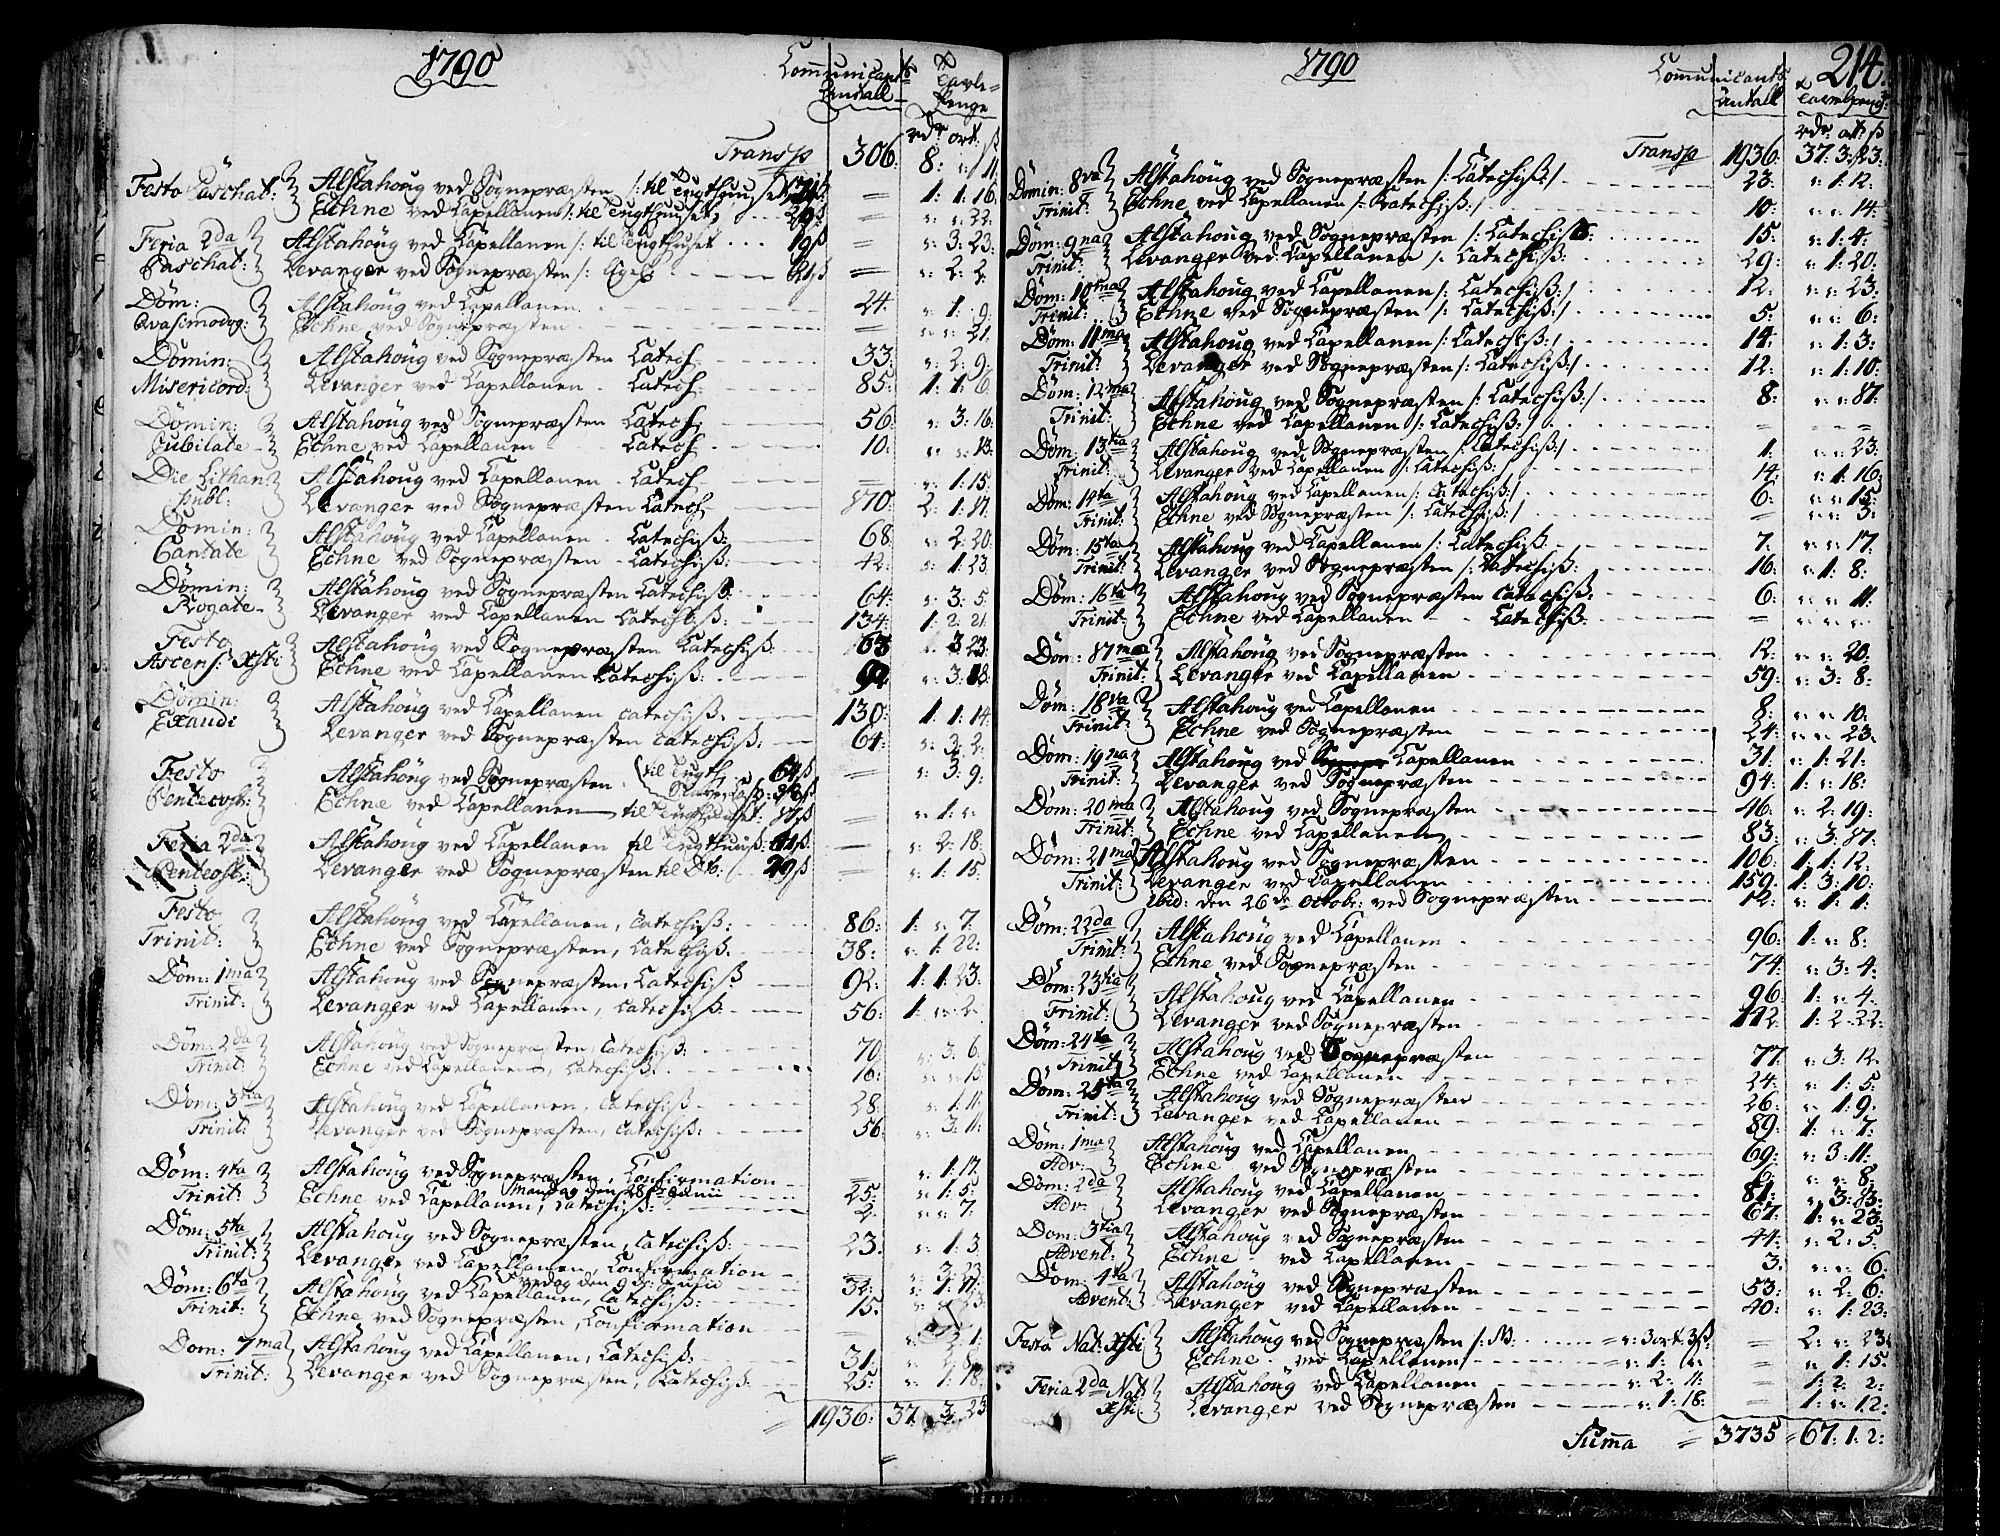 1790
Communicant: Antall
Tavle-Penge
rdr ort ß
Transp 306: 8: „: 11
Festo Paschat: Alstahoug ved Sognepræsten /: til Tugthuuset = 1: 1: 16.
Echne ved Capellanen /: til Tugthuuset, = „: „: 22:
Feria 2da Alstahoug ved Capellanen /: til Tugthuset 19ß = „: 3: 23:
Paschat: Levanger ved Sognepræsten /: = „: 2: 2:
Dom: Alstahoug ved Capellanen 24. „: 1: 9:
Qvasimodog: Echne ved Sognepræsten „: „: 21.
Domin: Alstahoug ved Sognepræsten Catech: 33: „: 2: 9:
Misericord: Levanger ved Capellanen Catech: 85: 1: 1: 6.
Domin: Alstahoug ved Sognepræsten Catech: 56: „: 3: 16:
Jubilate Echne ved Capellanen Catech: 10: „: „: 13:
Die Lithan Alstahoug ved Capellanen Catech = „: 1: 15:
Publ: Levanger ved Sognepræsten Catech 170: 2: 1: 17.
Domin: Alstahoug ved Capellanen Catechiß: 68: „: 2: 20:
Cantate Echne ved Sognepræsten Catechiß: 42: „: 1: 23.
Domin: Alstahoug ved Sognepræsten Catechiß 64: „: 3: 5:
Rogate Levanger ved Capellanen Catechiß: 134: 1: 2: 21.
Festo Alstahoug ved Sognepræsten Catechiß: 63 „: 3: 23:
Ascens: Xsti Echne ved Capellanen Catechiß: 92 „: 3: 18:
Domin: Alstahoug ved Capellanen Catechiß. 130: 1: 1: 14:
Exaudi Levanger ved Sognepræsten Catechiß: 64: „: 3: 2:
Festo Alstahoug ved Sognepræsten. (til Tugth 64ß = „: 3: 9:
Pentecost: Echne ved Capellanen til Tugthuuset: 17ß = „: 1: „:
Feria 2da Alstahoug ved Capellanen til Tugthuus: 61ß = „: 2: 18:
Pentcost: Levanger ved Sognepræsten til Dto: 29ß = „: 1: 15:
Festo Alstahoug ved Capellanen, Catechiß: 86: 1: „: 7:
Trinit: Echne ved Sognepræsten, Catechiß. 38: „: 1: 22:
Dom: 1ma Alstahoug ved Sognepræsten, Catechiß 92: 1: 1: 23:
Trinit: Levanger ved Capellanen, Catechiß: 56: 1: „: 2:
Dom: 2da Alstahoug ved Sognepræsten, Catechiß: 70: „: 3: 6:
Trinit: Echne ved Capellanen, Catechiß. 16: „: „: 15
Dom: 3tia Alstahoug ved Capellanen, Catechiß 28: „: 1: 11:
Trinit: Levanger ved Sognepræsten, Catechiß: 56: „: 3: 11:
Dom: 4ta Alstahoug ved Sognepræsten, Confirmation = „: 1: 17.
Mandag den 28de Junii 25: „: 1: 5:
Trinit: Echne ved Capellanen, Catechiß: 2. „: „: 7:
Dom: 5ta Alstahoug ved Sognepræsten, Catechiß: 23. „: 1: 3:
Trinit: Levanger ved Capellanen, Confirmation = „: 3: 23.
Dom: 6ta Alstahoug ved Capellanen, Catechiß: 15.
Trinit: Echne ved Sognepræsten, Confirmation =
Dom: 7ma Alstahoug ved Capellanen, Catechiß: 31:
Trinit: Levanger ved Sognepræsten, Catechiß: 25: „: 1: 18:
= 1936: 37. 3: 23
1790
214.
Communicant: Antall
rdr ort ß
Transp 1936: 37: 3: 23:
Domin: 8va Alstahoug ved Sognepræsten /: Catechiß:/ 23: „: 1: 12:
Trinit: Echne ved Capellanen /: Catechiß:/ 10: „: „: 14:
Dom: 9na Alstahoug ved Sognepræsten /: Catechiß: 15: „: 1: 4:
Trinit: Levanger ved Capellanen /: Catechiß: 29: „: 1: 20:
Dom: 10ma Alstahoug ved Capellanen /: Catechiß:/ 12: „: „: 23:
Trinit: Echne ved Sognepræsten /: Catechiß:/ 5: „: „: 6:
Dom: 11ma Alstahoug ved Capellanen /: Catechiß:/ 14: „: 1: 3:
Trinit: Levanger ved Sognepræsten /: Catechiß:/ 12: „: 1: 10:
Dom: 12ma Alstahoug ved Sognepræsten /: Catechiß:/ 8: „: „: 17:
Trinit: Echne ved Capellanen /: Catechiß:/ = = =
Dom: 13tia Alstahoug ved Sognepræsten /: Catechiß:/ 1: „: „: 23:
Trinit: Levanger ved Capellanen /: Catechiß:/ 14: „: 1: 16:
Dom: 14ta Alstahoug ved Capellanen /: Catechiß:/ 6: „: „: 15:
Trinit: Echne ved Sognepræsten /: Catechiß:/ = „: „: 3:
Dom: 15ta Alstahoug ved Capellanen /: Catechiß: 7: „: „: 17:
Trinit: Levanger ved Sognepræsten /: Catechiß: 16: „: 1: 8:
Dom: 16ta Alstahoug ved Sognepræsten Catechiß: 6: „: „: 11:
Trinit: Echne ved Capellanen Catechiß: = „: „: „:
Dom: 17ma Alstahoug ved Sognepræsten 12: „: „: 20:
Trinit: Levanger ved Capellanen 59: „: 3: 8:
Dom: 18va Alstahoug ved Capellanen 8: „: „: 10:
Trinit: Echne ved Sognepræsten 24: „: „: 23.
Dom: 19na Alstahoug ved Capellanen 31: „: 1: 21:
Trinit: Levanger ved Sognepræsten 94: 1: „: 18:
Dom: 20ma Alstahoug ved Sognepræsten 46: „: 2: 19:
Trinit: Echne ved Capellanen 83: „: 3: 17:
Dom: 21ma Alstahoug ved Sognepræsten 106: 1: 1: 12:
Trinit: Levanger ved Capellanen 159: 1: 3: 10:
Ibid: den 26de Octobr: ved Sognepræsten 12: „: 1: 1:
Dom: 22da Alstahoug ved Capellanen 96: 1: „: 8:
Trinit: Echne ved Sognepræsten 74: „: 3: 4:
Dom: 23tia Alstahoug ved Capellanen 96: 1: „: 4:
Trinit: Levanger ved Sognepræsten 112: 1: 2: 22:
Dom: 24ta Alstahoug ved Sognepræsten 77: „: 3: 12.
Trinit: Echne ved Capellanen 24: „: 1: 5:
Dom: 25ta Alstahoug ved Sognepræsten 26: „: 1: 9:
Trinit: Levanger ved Capellanen 89: 1: „: 7:
Dom: 1ma Alstahoug ved Capellanen 69: „: 3: 11:
Adv: Echne ved Sognepræsten „: „: 8:
Dom: 2da Alstahoug ved Capellanen 81: „: 3: 13:
Adv: Levanger ved Sognepræsten 67: 1: „: 23:
Dom: 3tia Alstahoug ved Sognepræsten 44: „: 2: 5:
Advent: Echne ved Capellanen 3. „: „: 6:
Dom: 4ta Alstahoug ved Sognepræsten 53: „: 2: 6:
Advent: Levanger ved Capellanen 40: „: 1: 23:
Festo Nat: Xsti Alstahoug ved Sognepræsten /: = „: 3 ort 3ß: = 2: „: 23:
Echne ved Capellanen = „: 1: „: = „: 1: 15:
Feria 2da Nat: Xsti Alstahoug ved Capellanen „: 2: 11: = 1: 2: 2:
Levanger ved Sognepræsten „: 1: 18: = 1: „: 12:
Summa = 3735 = 67: 1: 2: